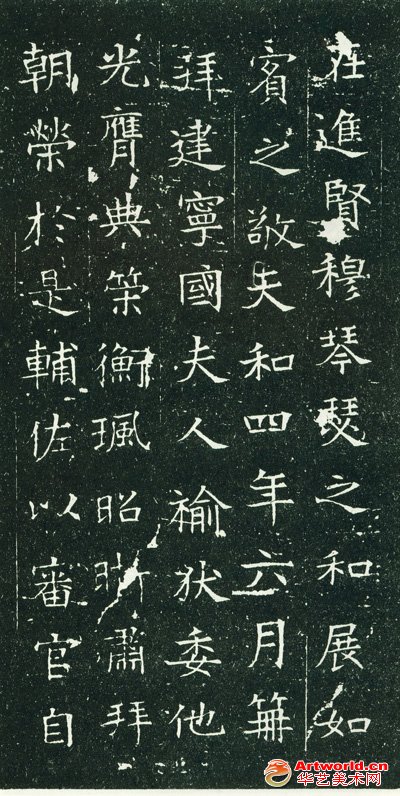 在進賢穆琴瑟之和展如
賓之敬和四年六月
拜建寧國夫人褕狄委他
光膺典筞衡珮昭晰肅拜
朝榮於是輔佐以審官自
Artworld.cn
华艺美术网